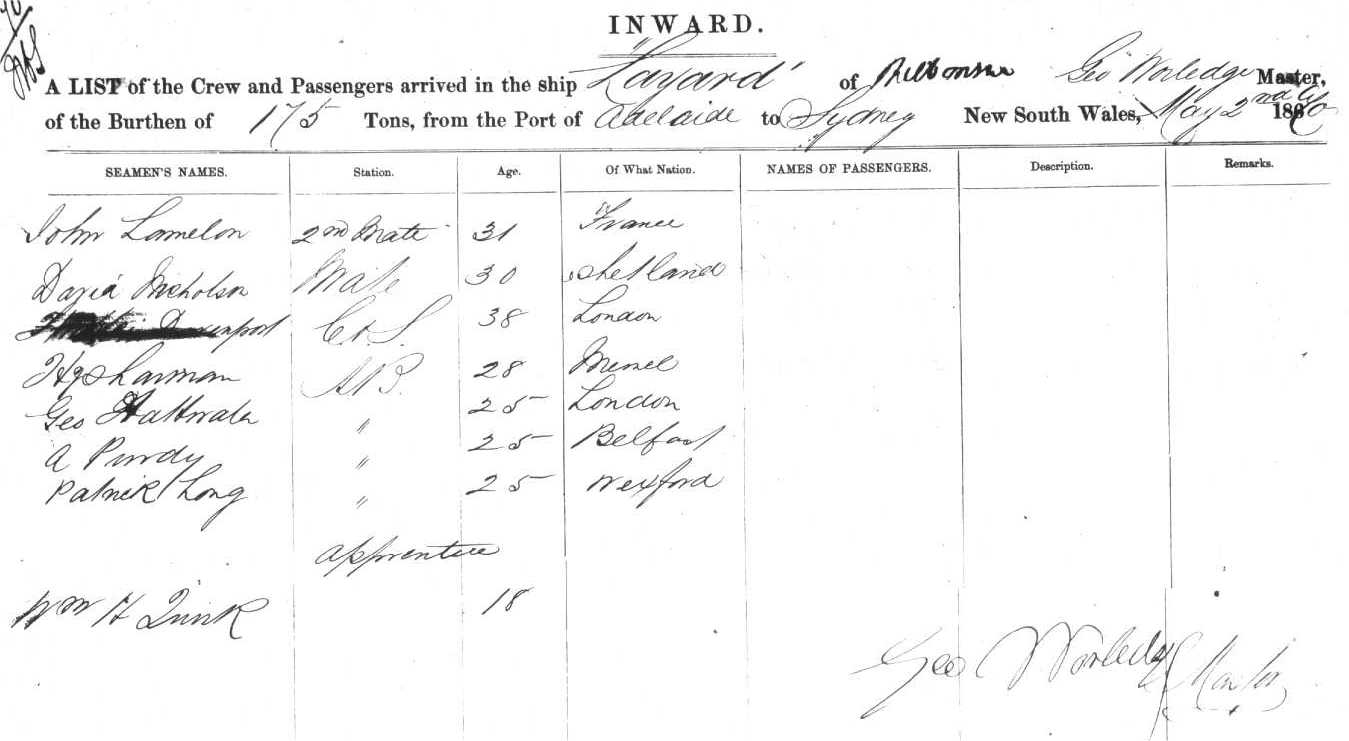 INWARD.
A LIST of the Crew and Passengers arrived in the ship "Layard" of Melbourne Geo Worledge Master,
of the Burthen of 175 Tons, from the Port of Adelaide to Sydney New South Wales, May 2nd 186
SEAMEN'S NAMES. Station. Age. Of What Nation. NAMES OF PASSENGERS. Description. Remarks.
John Lamelon 2nd Mate 31 France
David Nicholson Mate 30 Shetland
Davenport C & S. 38 London
Hy Sharman AB. 28 Memel
Geo Hallwater " 25 London
A Purdy " 25 Belfast
Patrick Long " 25 Wexford
apprentice
Wm H Quirk 18
Geo Worledge Master